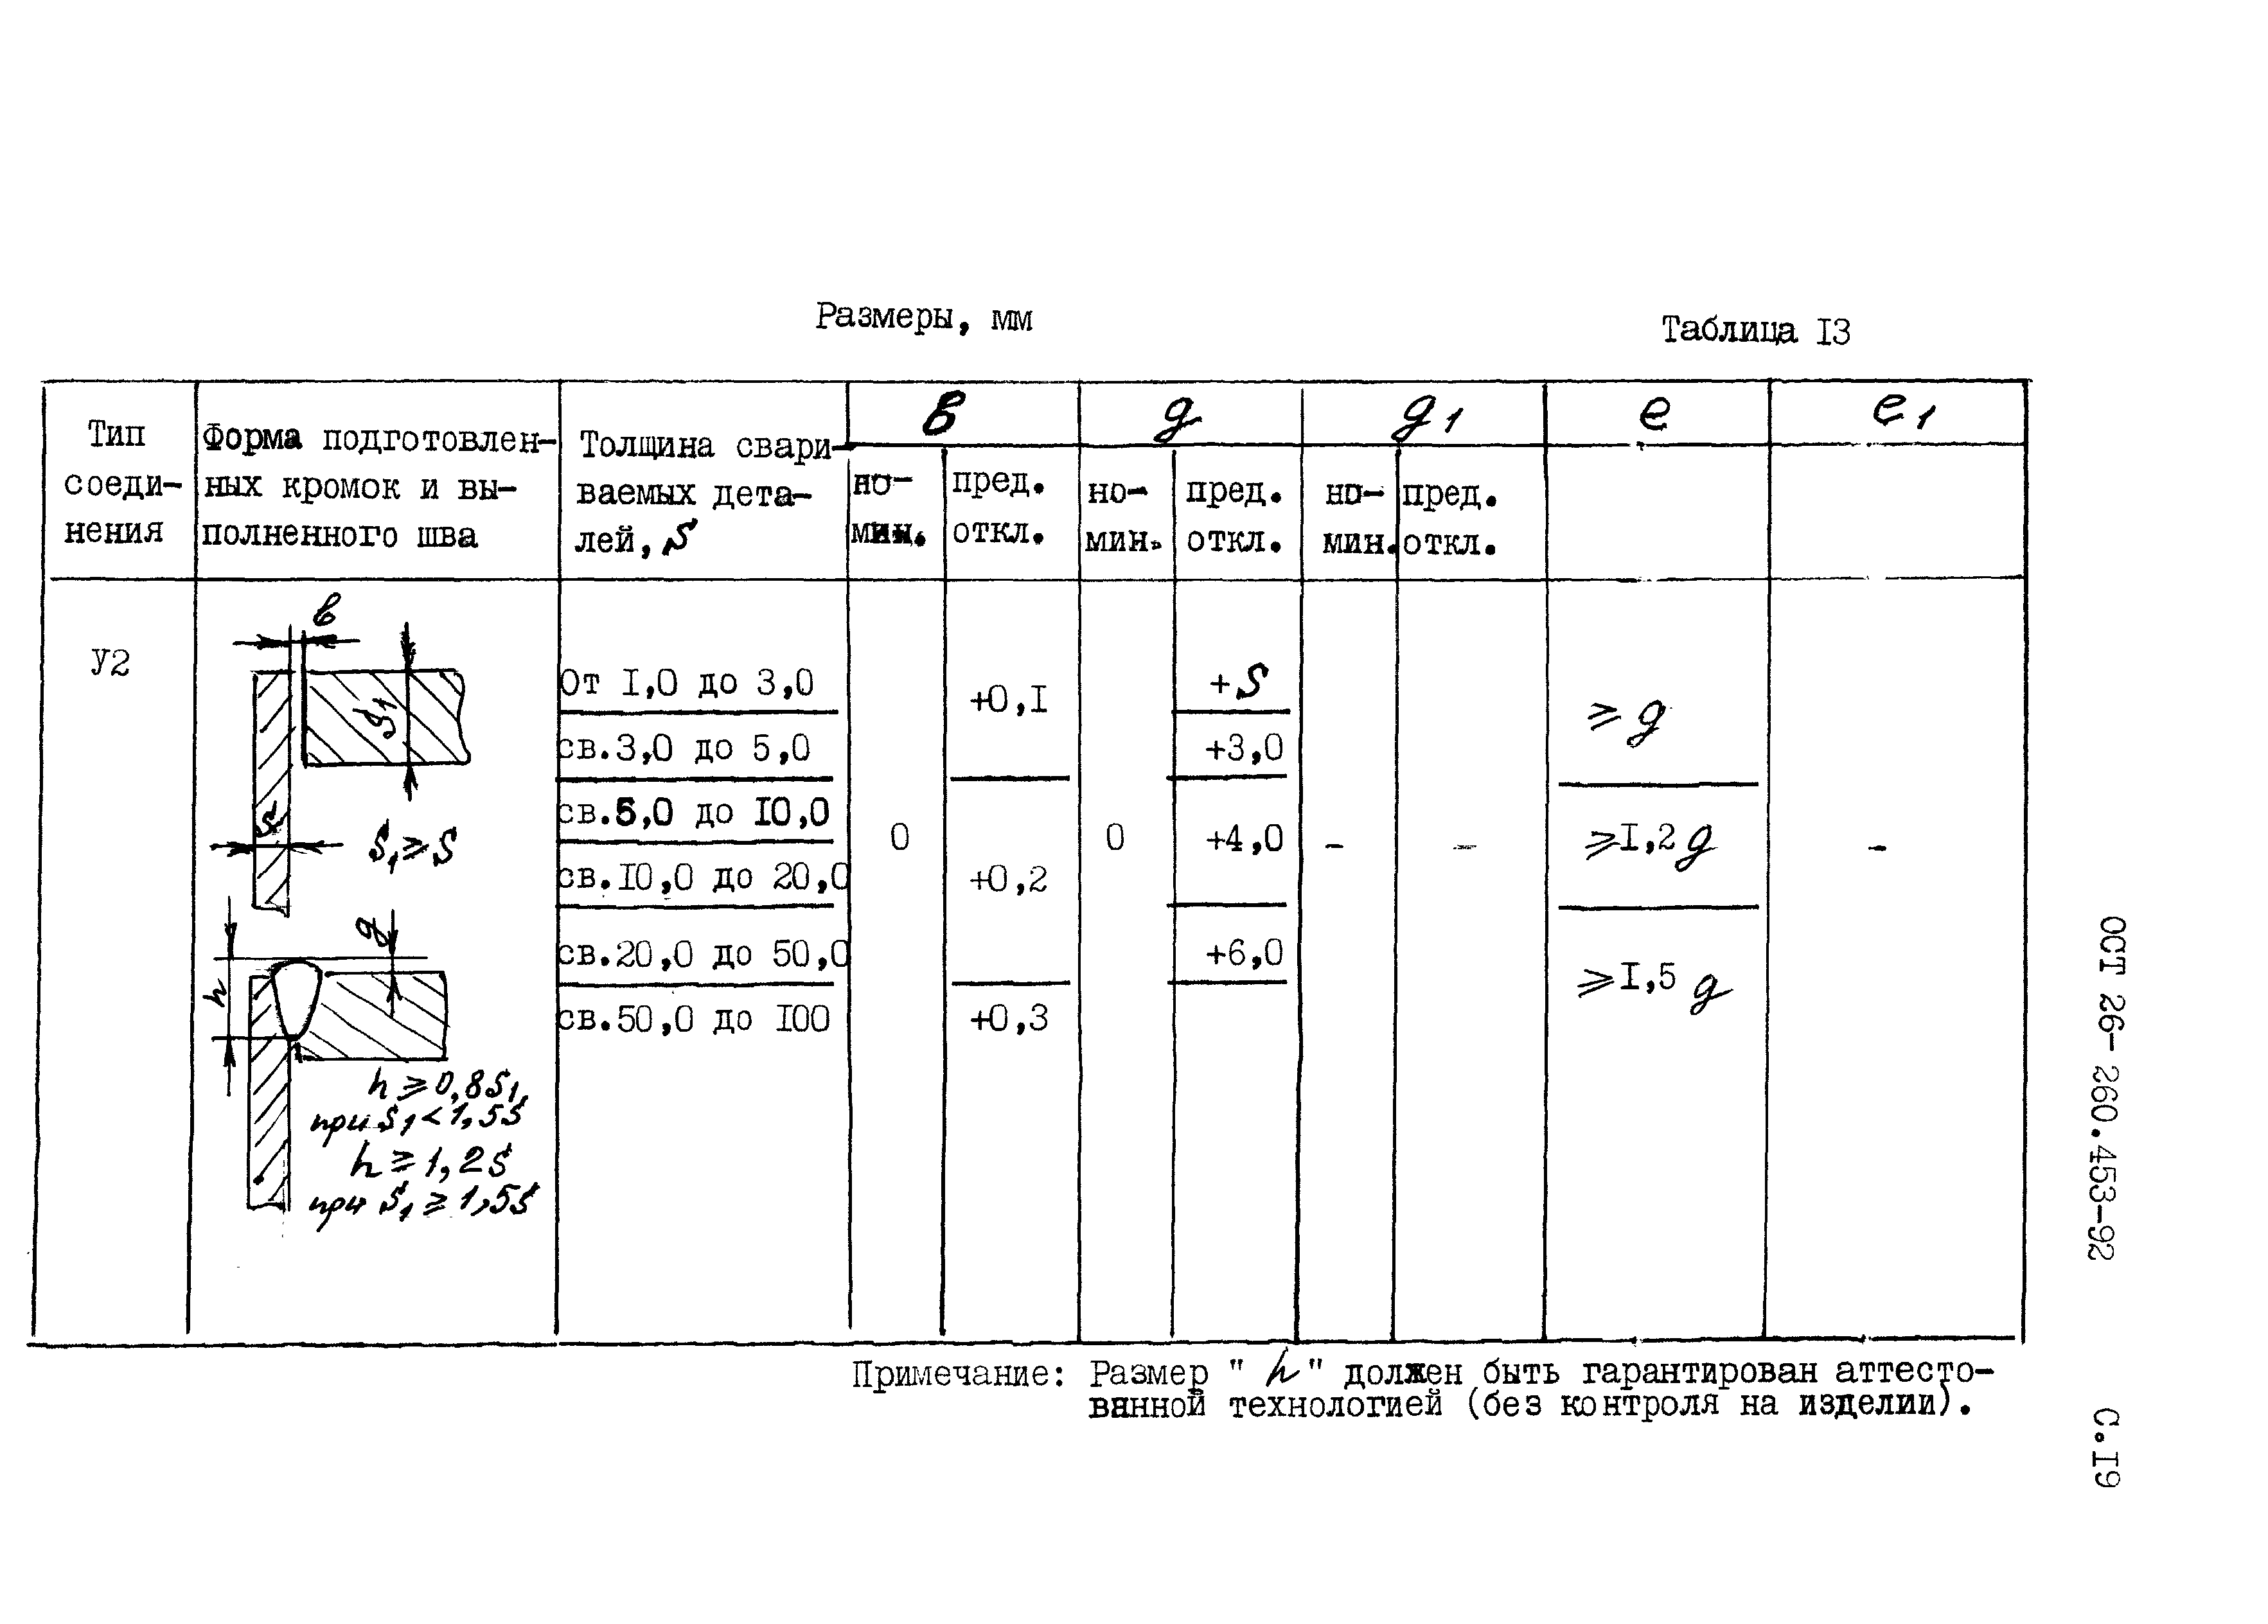 Размеры, мм
Таблица I3
Тип
соеди-
нения
Форма подготовлен-
ных кромок и вы-
полненного шва
Толщина свари-
ваемых дета-
лей, S
в
но-
мин.
пред.
откл.
g
но-
мин.
пред.
откл.
g1
но-
мин.
пред.
откл.
e
e1
У2
в
S1
S
S1 ≥ S
g
h
h ≥ 0,8S1,
при S1 < 1,5S
h ≥ 1,2S
при S1 ≥ 1,5S
От I,0 до 3,0
св.3,0 до 5,0
св.5,0 до I0,0
св.I0,0 до 20,0
св.20,0 до 50,0
св.50,0 до I00
0
+0,I
+0,2
+0,3
0
+S
+3,0
+4,0
+6,0
-
-
≥ g
≥I,2 g
≥I,5 g
-
Примечание: Размер "h" должен быть гарантирован аттесто-
ванной технологией (без контроля на изделии).
ОСТ 26-260.453-92
С.I9